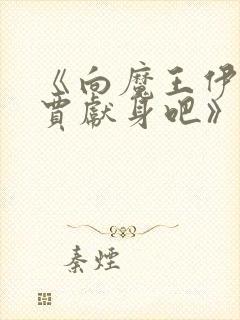 《向魔王伊
贾献身吧》
秦煙